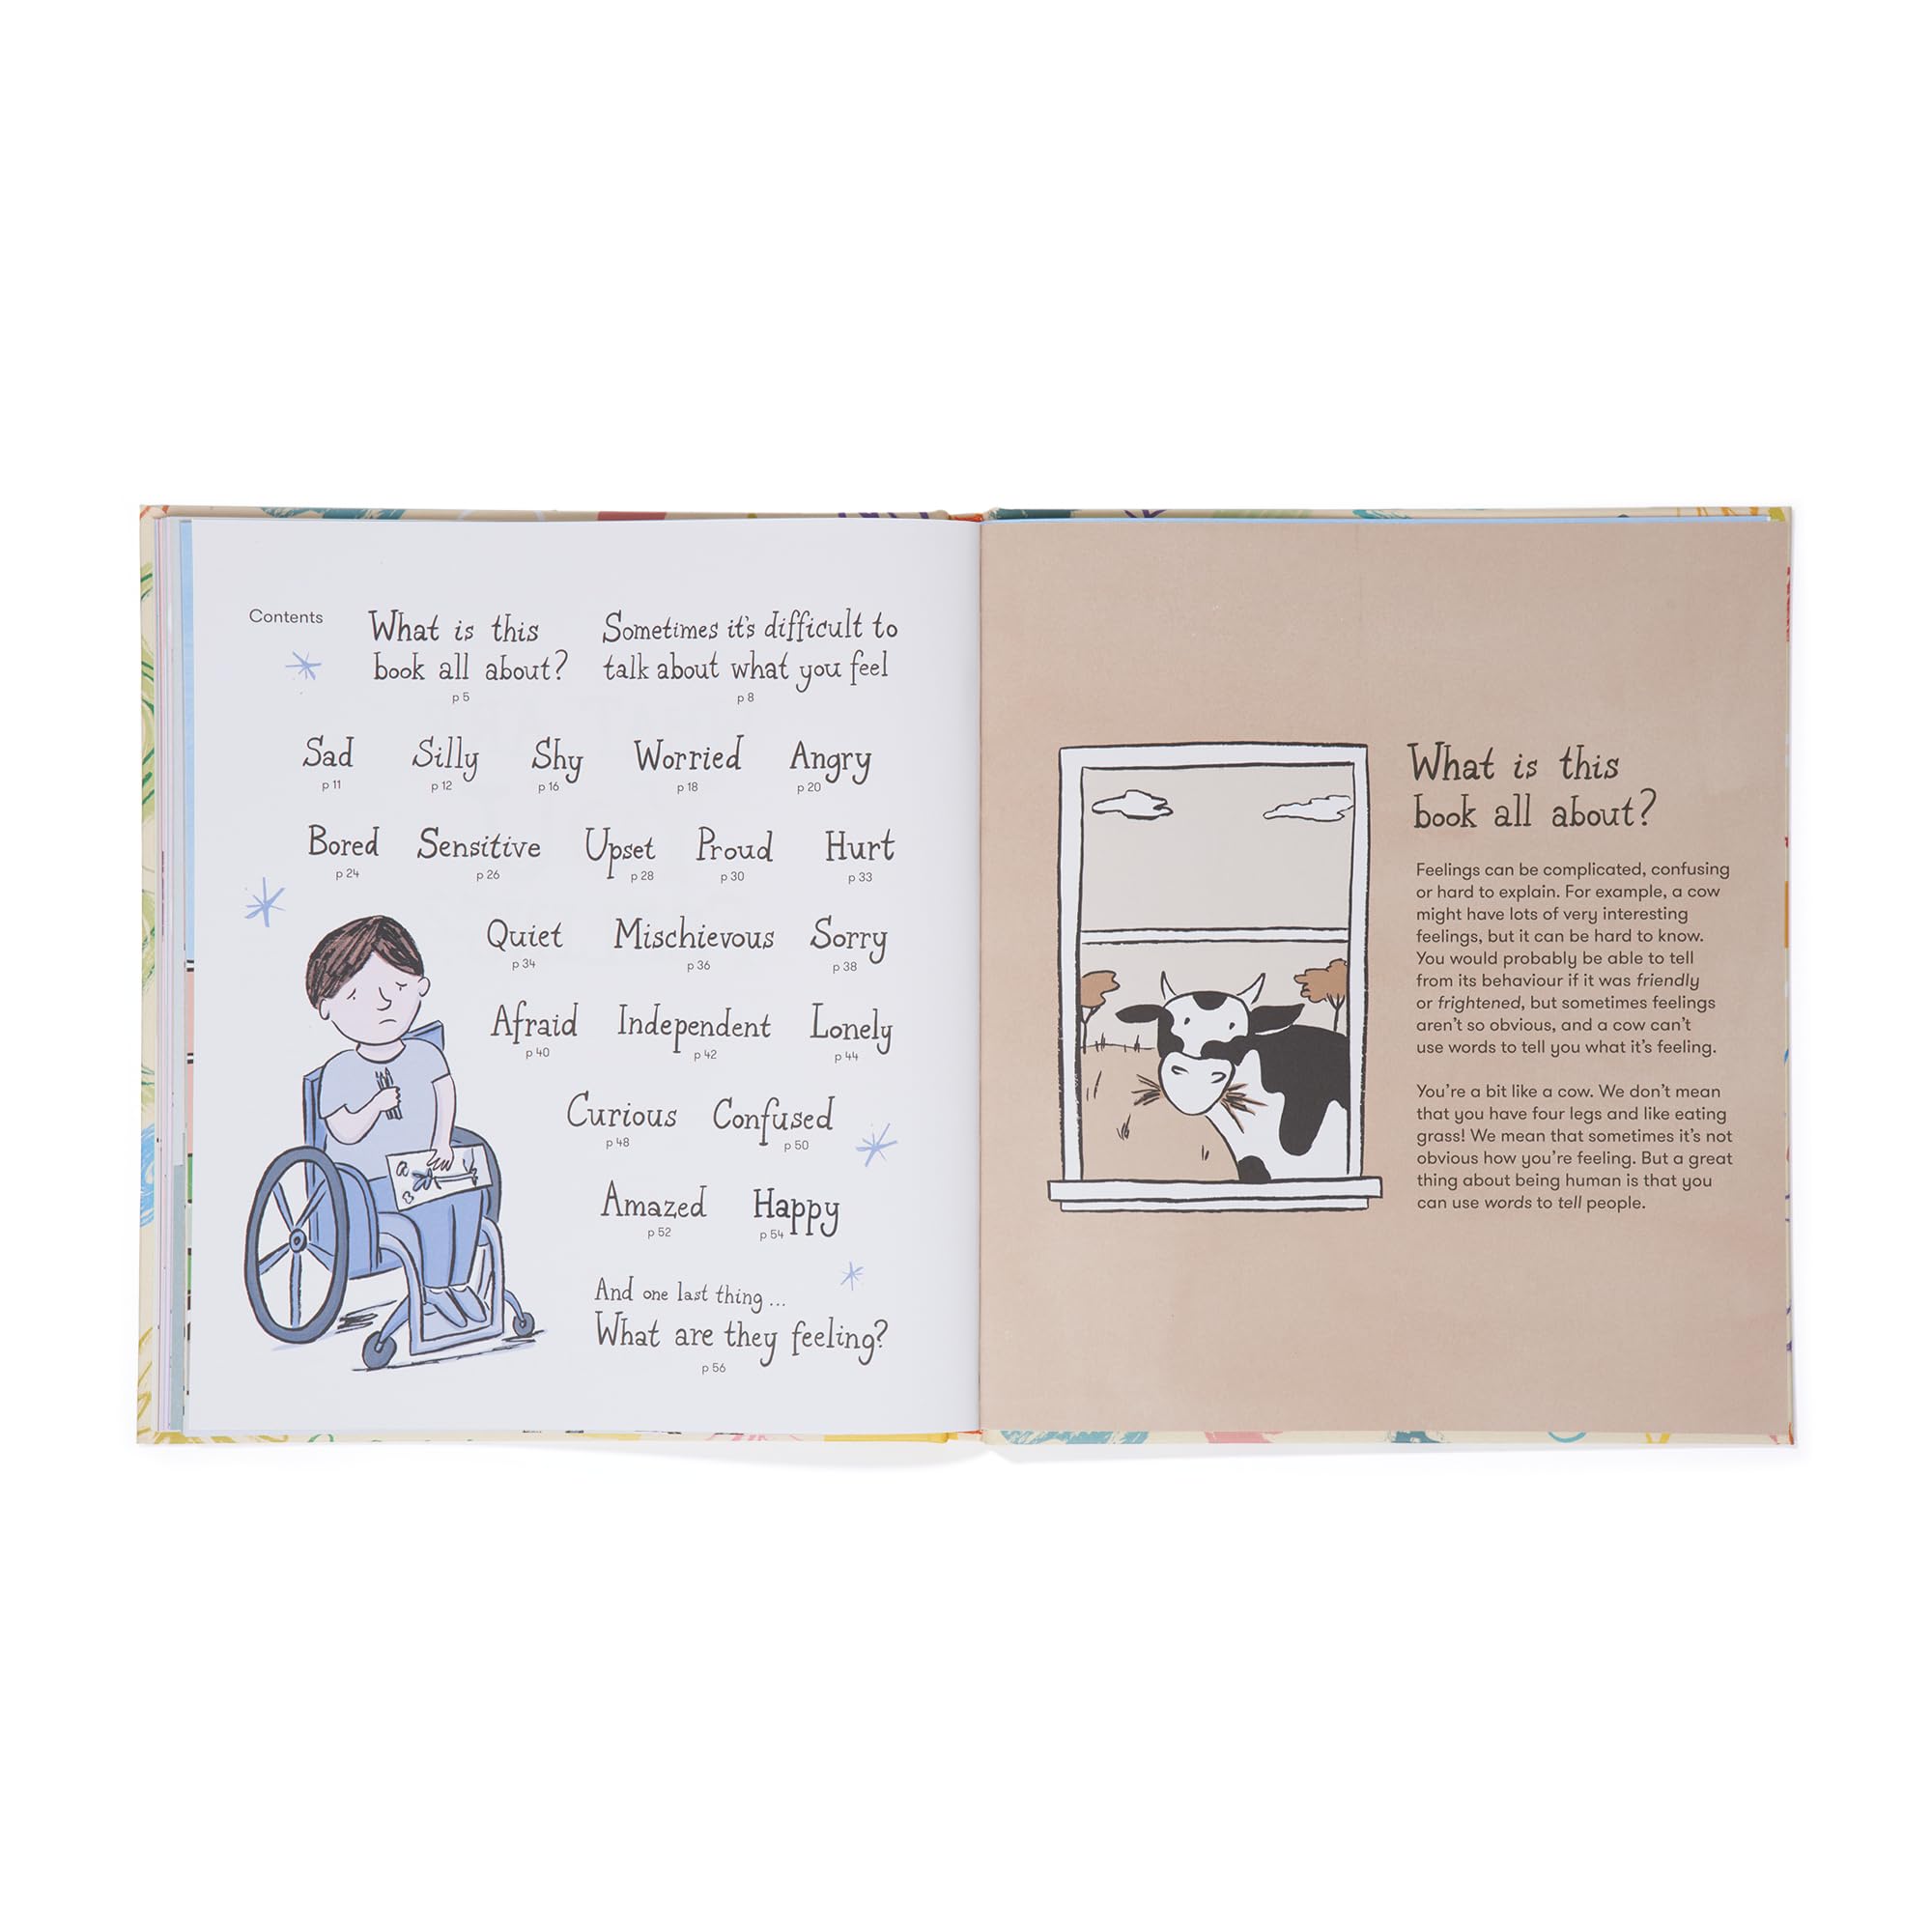 Contents
What is this
book all about?
p 5
Sometimes it's difficult to
talk about what you feel
p 8
Sad
p 11
Silly
p 12
Shy
p 16
Worried
p 18
Angry
p 20
Bored
p 24
Sensitive
p 26
Upset
p 28
Proud
p 30
Hurt
p 33
Quiet
p 34
Mischievous
p 36
Sorry
p 38
Afraid
p 40
Independent
p 42
Lonely
p 44
Curious
p 48
Confused
p 50
Amazed
p 52
Happy
p 54
And one last thing...
What are they feeling?
p 56
What is this
book all about?
Feelings can be complicated, confusing
or hard to explain. For example, a cow
might have lots of very interesting
feelings, but it can be hard to know.
You would probably be able to tell
from its behaviour if it was friendly
or frightened, but sometimes feelings
aren't so obvious, and a cow can't
use words to tell you what it's feeling.
You're a bit like a cow. We don't mean
that you have four legs and like eating
grass! We mean that sometimes it's not
obvious how you're feeling. But a great
thing about being human is that you
can use words to tell people.